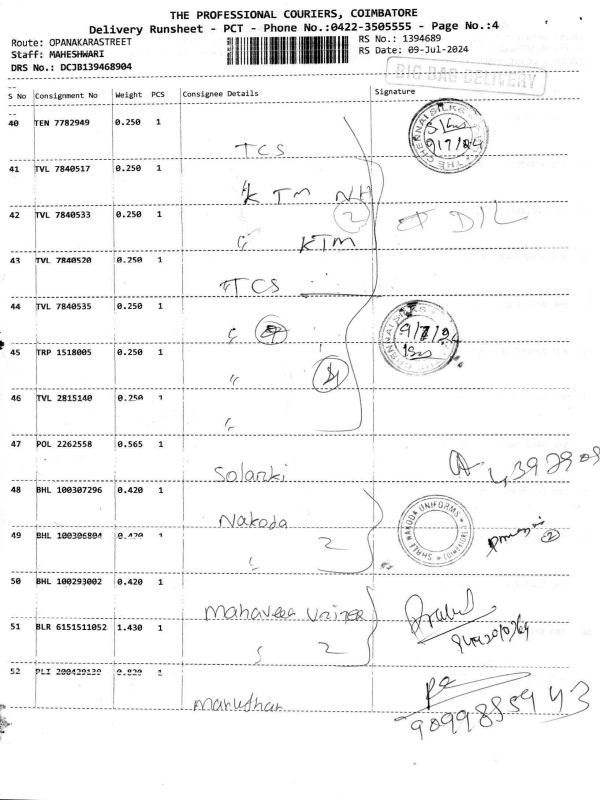 THE PROFESSIONAL COURIERS, COIMBATORE
Delivery Runsheet - PCT - Phone No.:0422-3505555 - Page No.:4
Route: OPANAKARASTREET
RS No.: 1394689
Staff: MAHESHWARI
RS Date: 09-Jul-2024
DRS No.: DCJB139468904
BIG BAG DELIVERY
S No Consignment No Weight PCS Consignee Details Signature
40 TEN 7782949 0.250 1
THE CHENNAI SILKS
9/7/24
TCS
41 TVL 7840517 0.250 1
KTM NH
2
42 TVL 7840533 0.250 1
〃 KTM
43 TVL 7840520 0.250 1
TCS
44 TVL 7840535 0.250 1
〃
9/7/24
45 TRP 1518005 0.250 1
〃
46 TVL 2815140 0.250 1
〃
47 POL 2262558 0.565 1
Solanki
48 BHL 100307296 0.420 1
Nakoda
SHREE NAKODA UNIFORMS
49 BHL 100306804 0.420 1
〃 2
2
50 BHL 100293002 0.420 1
51 BLR 6151511052 1.430 1
〃 2
52 PLI 200429139 0.820 1
9099855943